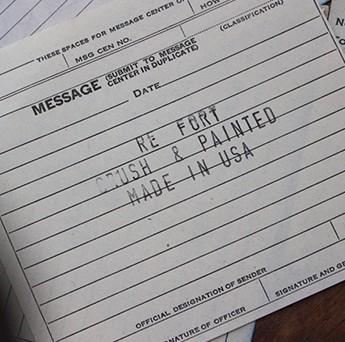 THESE SPACES FOR MESSAGE CENTER O
HOW
MSG CEN NO.
(CLASSIFICATION)
MESSAGE (SUBMIT TO MESSAGE
CENTER IN DUPLICATE)
DATE
N
RE FORT
& PAINTED
MADE IN USA
OFFICIAL DESIGNATION OF SENDER
SIGNATURE OF OFFICER
SIGNATURE AND GR